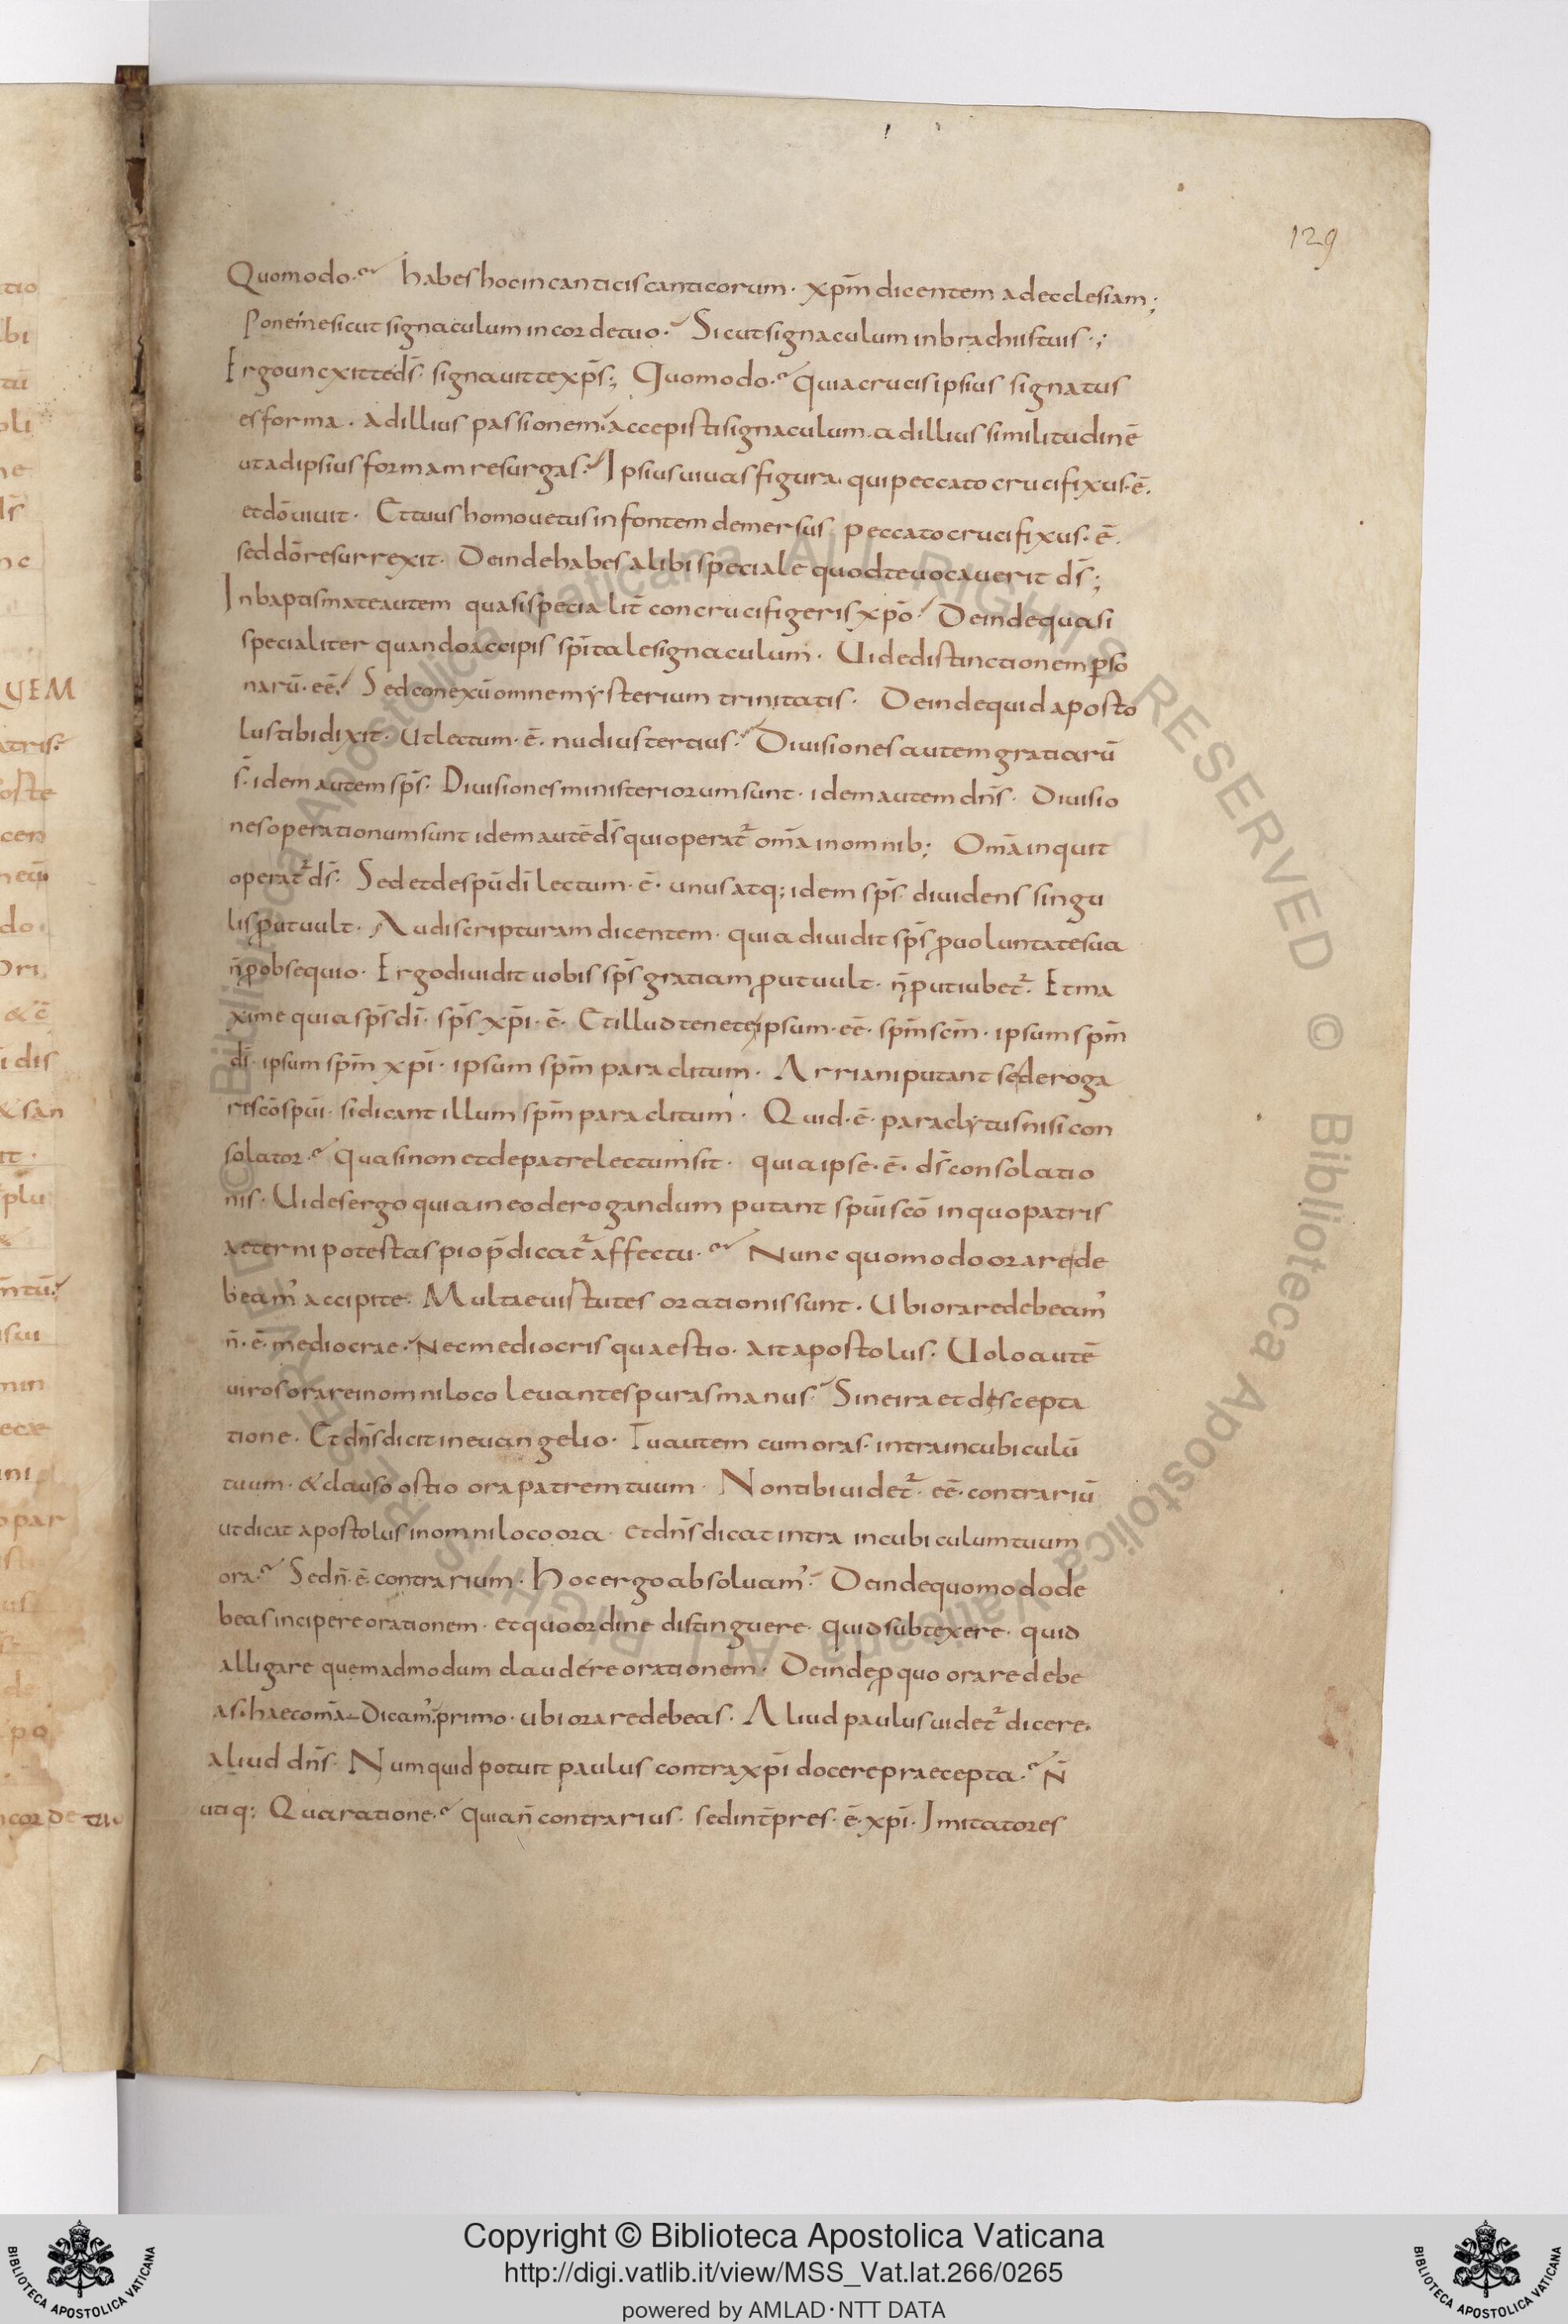 129
Quomodo. habes hoc in canticis canticorum. xp̄m dicentem ad ecclesiam;
Pone me sicut signaculum in corde tuo. Sicut signaculum in brachiis tuis.;
Ergo uncxit te d̄s. signauit te xp̄s; Quomodo. quia crucis ipsius signatus
es forma. ad illius passionem. accepisti signaculum. ad illius similitudinē
ut ad ipsius formam resurgas. Ipsius uiuas figura. qui peccato crucifixus. ē.
et dō uiuit. Et tuus homo uetus in fontem demersus peccato crucifixus. ē.
sed dō resurrexit. Deinde habes alibi speciale quod te uocauerit d̄s;
In baptismate autem quasi specialit̄ concrucifigeris xp̄o. Deinde quasi
specialiter quando accipis sp̄itale signaculum. Uide distinctionem p̱so
narū. eē. Sed conexū omne mysterium trinitatis. Deinde quid aposto
lus tibi dixit. Ut lectum. ē. nudius tertius. Diuisiones autem gratiarū
s̄. idem autem sp̄s. Diuisiones ministeriorum sunt. idem autem dn̄s. Diuisio
nes operationum sunt idem autē d̄s qui operat̄ om̄a in omnib; Om̄a inquit
operat̄ d̄s. Sed et de spū dī lectum. ē. unus atq; idem sp̄s. diuidens singu
lis ꝓut uult. Audi scripturam dicentem. quia diuidit sp̄s ꝓ uoluntate sua
n̄ ꝓ obsequio. Ergo diuidit uobis sp̄s gratiam ꝓut uult. n̄ ꝓut iubet̄. Et ma
xime quia sp̄s dī. sp̄s xp̄i. ē. Et illud tenete ipsum. eē. sp̄m scm̄. ipsum sp̄m
dī. ipsum sp̄m xp̄i. ipsum sp̄m paraclitum. Arriani putant se deroga
re scō spūi. si dicant illum sp̄m paraclitum. Quid. ē. paraclytus nisi con
solator. quasi non et de patre lectum sit. quia ipse. ē. d̄s consolatio
nis. Uides ergo quia in eo derogandum putant spūi scō in quo patris
aeterni potestas pio p̄dicat̄ affectu. Nunc quomodo orare de
beam' accipite. Multae uistutes orationis sunt. Ubi orare debeam'
n̄. ē. mediocrae. Nec mediocris quaestio. ait apostolus. Uolo autē
uiros orare in omni loco leuantes puras manus. Sine ira et descepta
tione. Et dn̄s dicit in euangelio. Tu autem cum oras. intra in cubiculū
tuum. & clauso ostio ora patrem tuum. Non tibi uidet̄. eē. contrariū
ut dicat apostolus in omni loco ora. et dn̄s dicat intra in cubiculum tuum
ora. Sed n̄. ē. contrarium. Hoc ergo absoluam'. Deinde quomodo de
beas incipere orationem. et quo ordine distinguere. quid subtexere. quid
alligare quemadmodum claudere orationem. Deinde ꝓ quo orare debe
as. haec om̄a dicam'. primo. ubi orare debeas. Aliud paulus uidet̄ dicere.
aliud dn̄s. Numquid potuit paulus contra xp̄i docere praecepta. N̄
utiq; Qua ratione. quia n̄ contrarius. sed int̄pres. ē. xp̄i. Imitatores
Copyright © Biblioteca Apostolica Vaticana
http://digi.vatlib.it/view/MSS_Vat.lat.266/0265
powered by AMLAD·NTT DATA